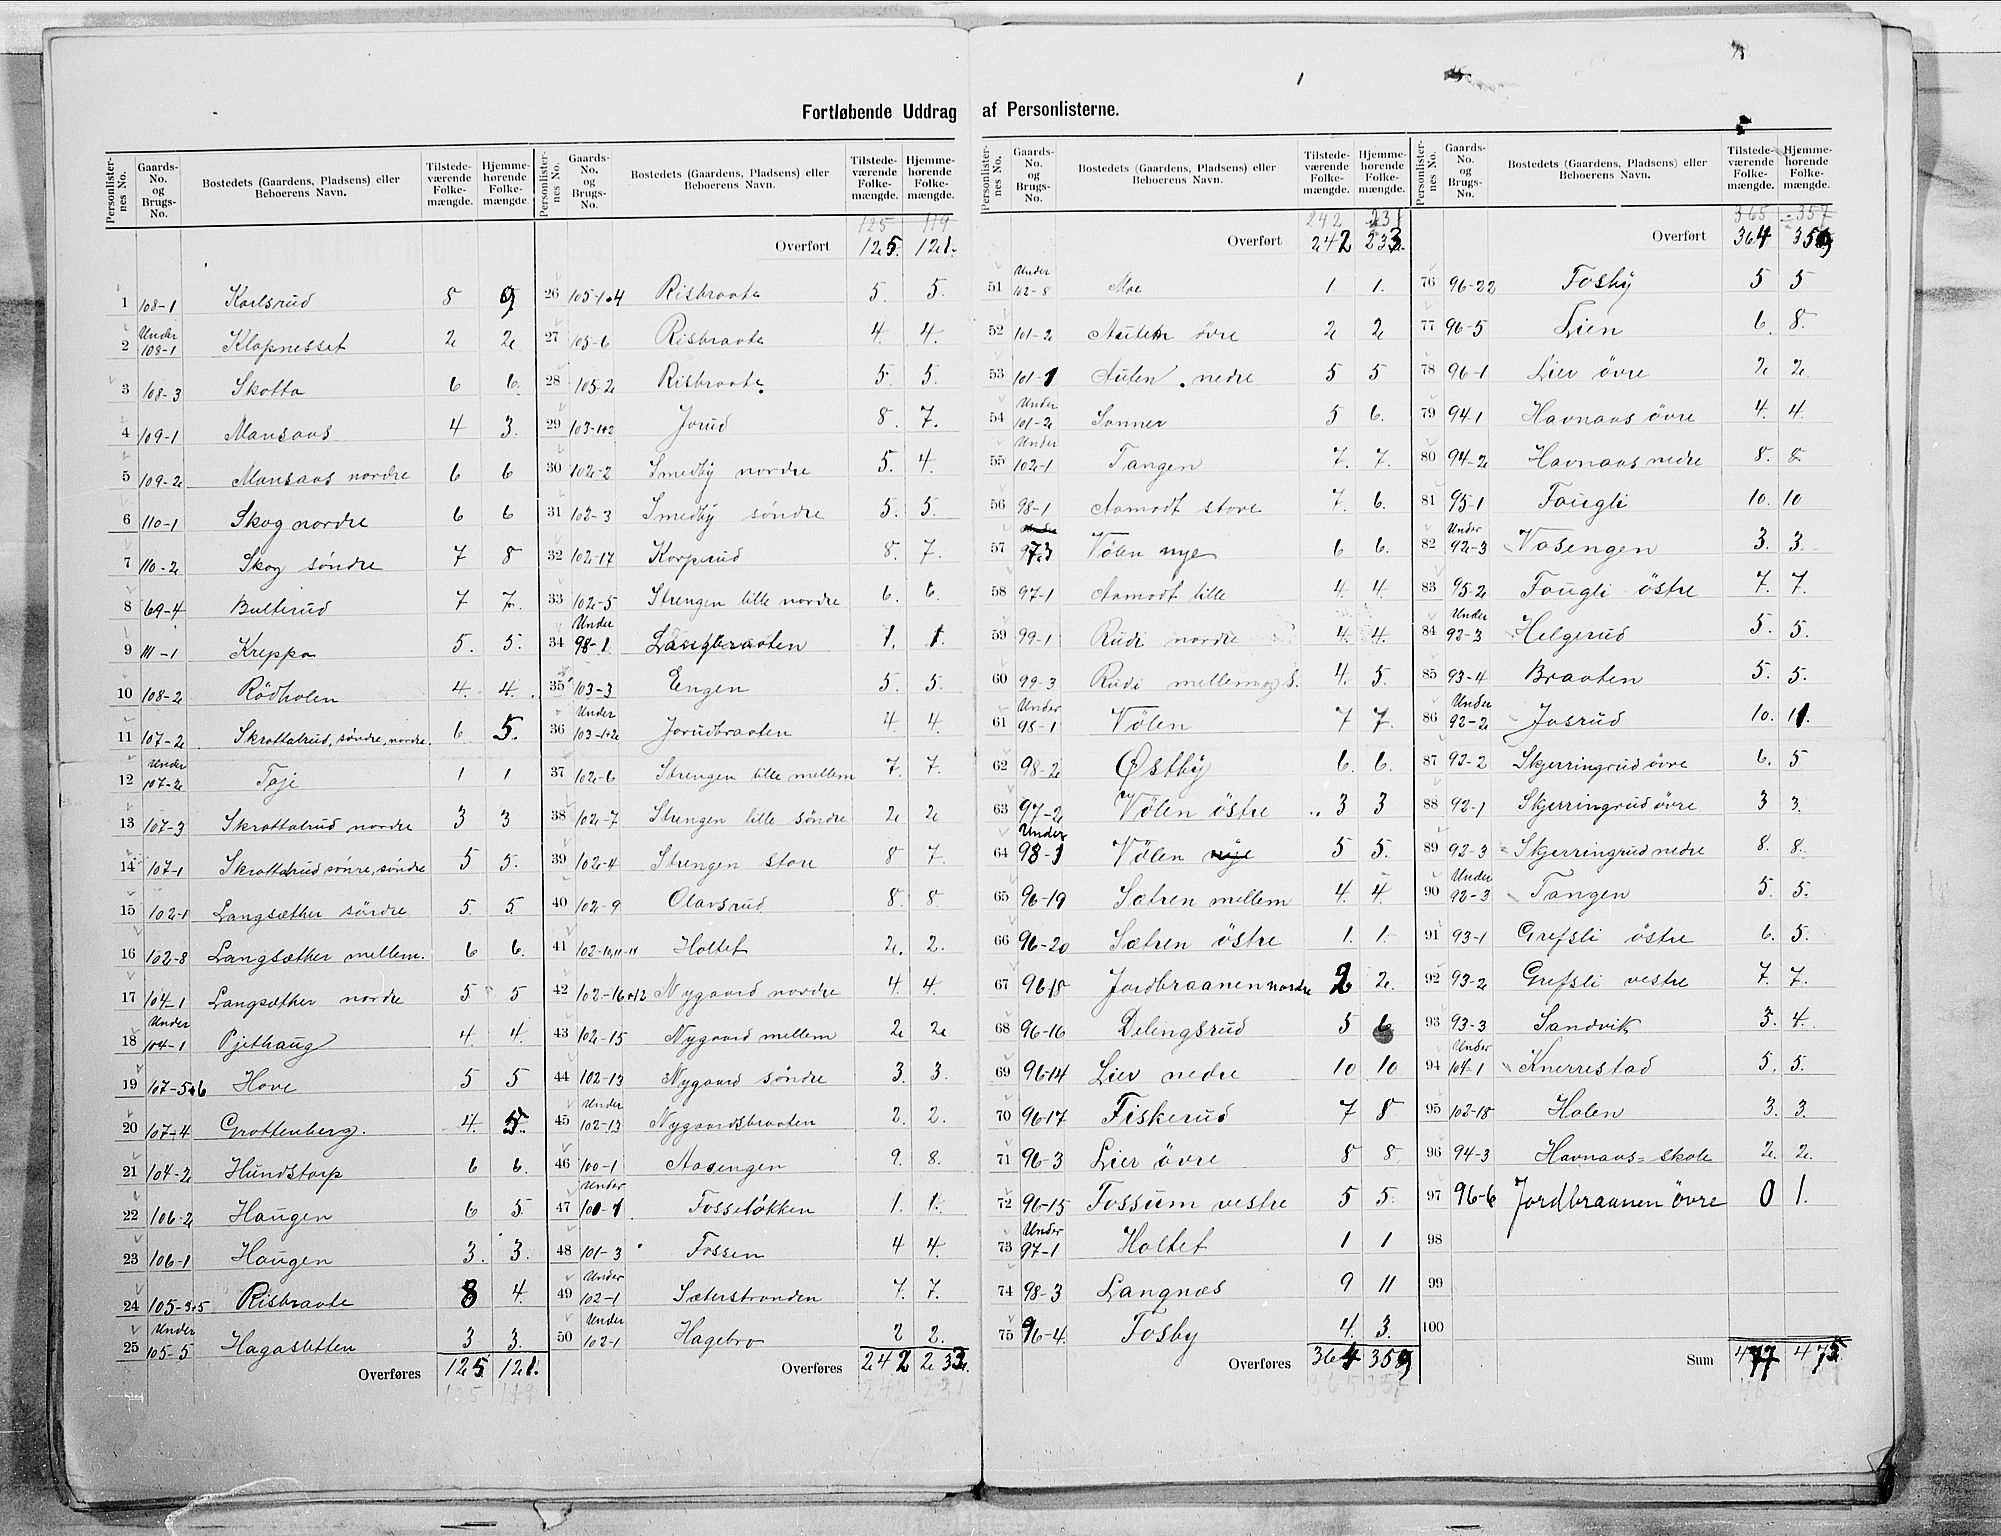 Fortløbende Uddrag af Personlisterne.
Personlister-nes No. Gaards-No. og Brugs-No. Bostedets (Gaardens, Pladsens) eller Beboerens Navn. Tilstede-værende Folke-mængde. Hjemme-hørende Folke-mængde.
1 108-1 Karlsrud 8 9
2 Under 108-1 Klopnesset 2 2
3 108-3 Skotta 6 6.
4 109-1 Mansaas 4 3.
5 109-2 Mansaas nordre 6 6
6 110-1 Skog nordre 6 6
7 110-2 Skog søndre 7 8
8 69-4 Bulterud 7 7.
9 111-1 Kreppa 5. 5.
10 108-2 Rödholen 4. 4.
11 107-2 Skrattalrud, søndre, nordre. 6. 5.
12 Under 107-2 Taje 1 1
13 107-3 Skrattalrud nordre 3 3
14 107-1 Skrattalrud sønre, søndre 5 5.
15 102-1 Langsæther söndre 5. 5.
16 102-8 Langsæther mellem. 6 6.
17 104-1 Langsæther nordre 5 5
18 Under 104-1 Pjethaug 4. 4.
19 107-5+6 Hove 5 5
20 107-4 Grottenberg. 4. 5.
21 104-2 Hundstorp 6 6.
22 106-2 Haugen 6 5.
23 106-1 Haugen 3. 3.
24 105-3+5 Risbraate 8 4.
25 Under 105-5 Hagasletten 3 3.
Overføres 125 121.
125 119
125 119
Overført 125. 121.
26 105-1+4 Risbraate 5. 5.
27 105-6 Risbraate 4. 4.
28 105-2 Risbraate. 5. 5.
29 103-1+2 Jorud 8. 7.
30 102-2 Smedby nordre 5. 4.
31 102-3 Smedby søndre 5. 5.
32 102-17 Korperud 8. 7.
33 102-5 Strengen lille nordre 6. 6.
34 Under 98-1 Langbraaten 1. 1.
35 103-3 Engen 5. 5.
36 Under 103-1+2 Jorudbraaten 4 4.
37 102-6 Strengen lille mellem 7. 7.
38 102-7 Strengen lille søndre 2. 2
39 102-4 Strengen store 8 7.
40 102-9 Olavsrud 8. 8.
41 102-10,11-14 Holtet 2. 2.
42 102-16+12 Nygaard nordre 4 4.
43 102-15 Nygaard mellem 2 2
44 102-13 Nygaard søndre 3. 3.
45 Under 102-13 Nygaardsbraaten 2. 2.
46 100-1 Aasengen 9. 8.
47 Under 100-1 Fosseløkken 1. 1.
48 101-3 Fossen 4 4.
49 Under 102-1 Sæterstranden 7. 7.
50 Under 102-1 Hagebro 2 2.
Overføres 242 233
242 231
Personlister-nes No. Gaards-No. og Brugs-No. Bostedets (Gaardens, Pladsens) eller Beboerens Navn. Tilstede-værende Folke-mængde. Hjemme-hørende Folke-mængde.
242 231
Overført 242 233.
51 Under 102-8 Moe 1 1.
52 101-2 Auten øvre 2 2
53 101-1 Auten nedre 5 5
54 Under 101-2 Sonner 5 6.
55 Under 102-1 Tangen 7. 7.
56 98-1 Aamodt store 7. 6.
57 97.3 Vølen nye 6 6.
58 97-1 Aamodt lille 4. 4.
59 99-1 Rudi nordre 4. 4.
60 99-3 Rudi mellem og S. 4. 5.
61 Under 98-1 Vølen 7 7.
62 98-2 Østby 6. 6.
63 97-2 Vølen östre 3 3
64 Under 98-1 Vølen 5 5.
65 96-19 Sætren mellem 4. 4.
66 96-20 Sætren östre 1. 1.
67 96-18 Jordbraanen nordre 2 2.
68 96-16 Delingsrud 5 6
69 96-14 Lier nedre 10 10
70 96-17 Fiskerud 7 8
71 96-3 Lier övre 8 8
72 96-15 Fossum vestre 5 5.
73 Under 97-1 Holtet 1 1
74 98-3 Langnæs 9 11
75 96-4. Fosby 4. 3.
Overføres 364 359
365 357
365 357
Overført 364 359
76 96-22 Fosby 5 5
77 96-5 Lien 6. 8.
78 96-1 Lier övre 2 2.
79 94-1 Havnaas övre 4. 4.
80 94-2 Havnaas nedre 8. 8.
81 95-1 Fougli 10. 10
82 Under 92-3 Vasengen 3. 3.
83 95-2 Fougli östre 7. 7.
84 Under 92-3 Helgerud 5. 5.
85 93-4 Braaten 5. 5.
86 Under 92-2 Josrud 10. 11.
87 92-2 Skjerringrud övre 6. 5
88 92-1 Skjerringrud övre 3 3.
89 92-3 Skjerringrud nedre 8. 8.
90 Under 92-3 Tangen 5. 5.
91 93-1 Grefsli östre 6. 5.
92 93-2 Grefsli vestre 7. 7.
93 93-3 Sandvik 3. 4.
94 Under 104-1 Knerrestad 5. 5.
95 102-18 Holen 3. 3.
96 94-3 Havnaas= skole 2. 2.
97 96-6 Jordbraanen øvre 0 1.
98
99
100
Sum 477 475